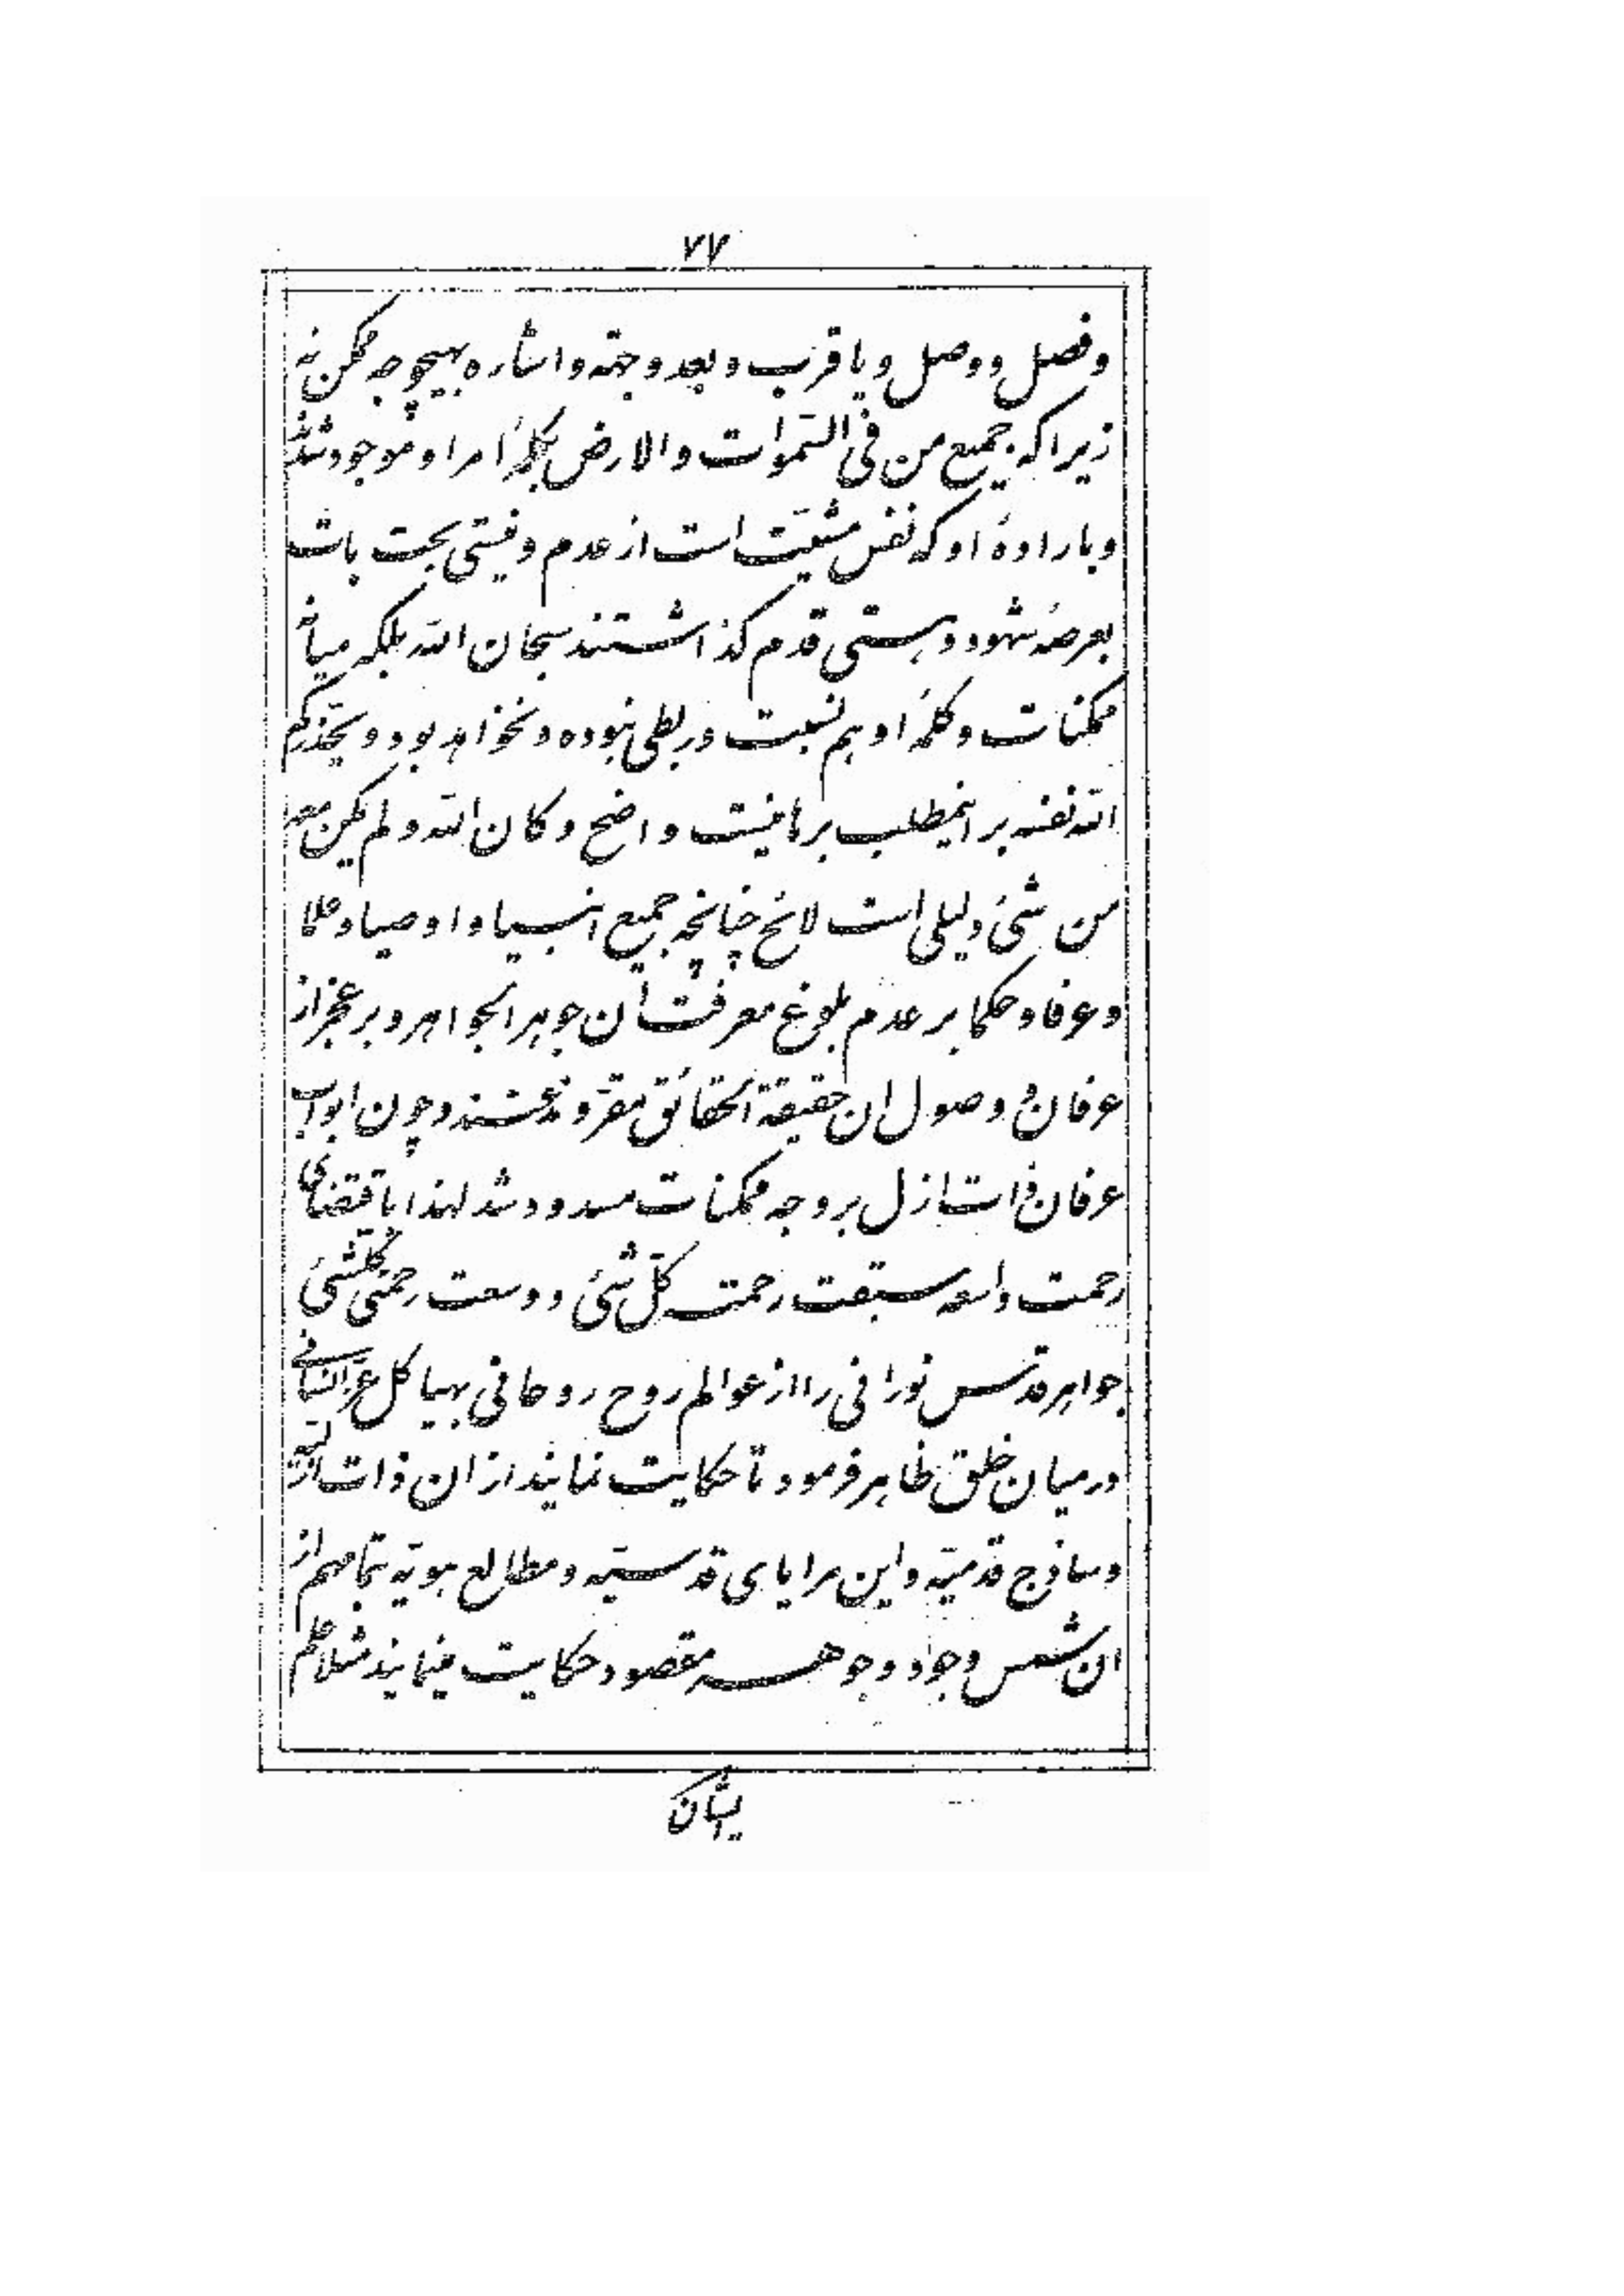 ۷۷
و فصل و وصل و یا قرب و بعد و جهة و اشاره بهیچوجه ممکن نه
زیرا که جمیع من فی السّموات والارض بکلمهٔ امر او موجود شدند
و باراده او که نفس مشیّت است از عدم و نیستی بحت بات
بعرصه شهود و هستی قدم گذاشتند سبحان الله بلکه میانه
ممکنات و کلمه او هم نسبت و ربطی نبوده و نخواهد بود و یحذّرکم
الله نفسه بر اینمطلب برهانیست واضح و کان الله و لم یکن معه
من شیء دلیلی است لائح چنانچه جمیع انبیا و اوصیا و علما
و عرفا و حکما بر عدم بلوغ معرفت آن جوهر الجواهر و بر عجز از
عرفان و وصول ان حقیقة الحقائق مقرّ و مذعنند و چون ابواب
عرفان ذات ازل بر وجه ممکنات مسدود شد لهذا باقتضای
رحمت واسعه سبقت رحمته کلّ شیء و وسعت رحمتی کلّشیء
جواهر قدس نورانی را از عوالم روح روحانی بهیاکل عزّ انسانی
در میان خلق ظاهر فرمود تا حکایت نمایند از ان ذات ازلیّه
و ساذج قدمیّه و این مرایای قدسیّه و مطالع هویّه بتمامهم از
ان شمس وجود و جوهر مقصود حکایت مینمایند مثلا علم
ایشان